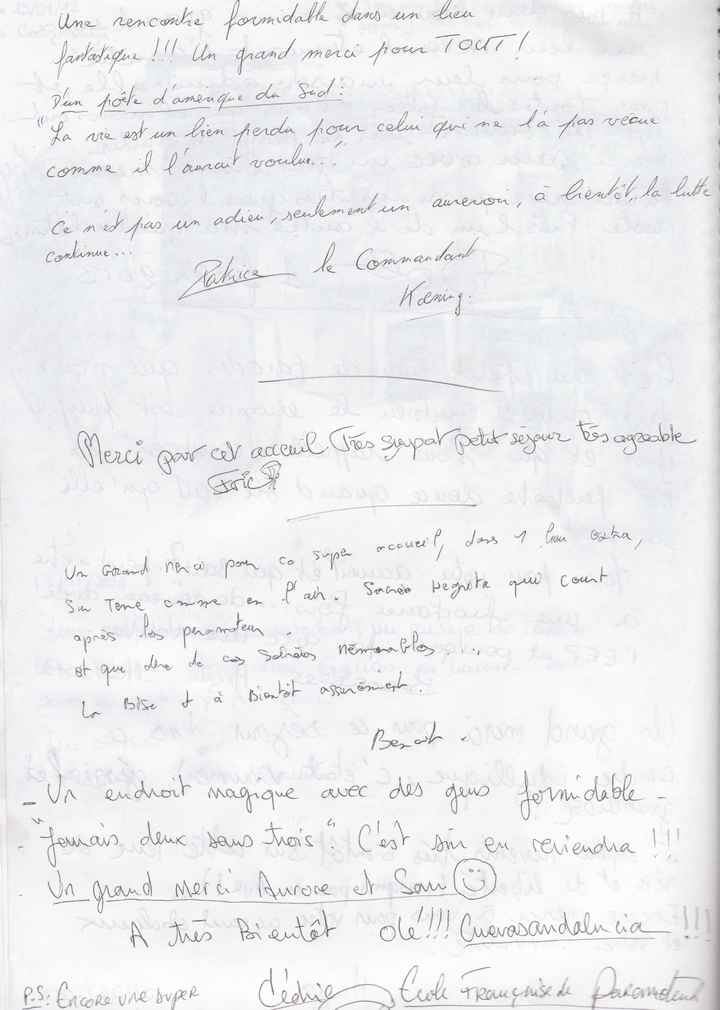 Une rencontre formidable dans un lieu
fantastique !!! Un grand merci pour TOUT !
D'un poête d'amérique du Sud :
"La vie est un bien perdu pour celui qui ne l'à pas vécue
comme il l'aurait voulu..."
Ce n'est pas un adieu, seulement un aurevoir, à bientôt, la lutte
continue...
Patrice le Commandant
Koenig.
Merci par cet acceuil Très sympat petit séjour très agreable
Eric
Un Grand Merci pour ce super accueil, dans 1 lieu extra,
Sur Terre comme en l'air. Sacrée Negrita qui court
après les paramoteur.
et que dire de ces soirées mémorables ...
La Bise et à Bientôt assurément.
Benoit.
- Un endroit magique avec des gens formidable -
- "Jamais deux sans trois" : C'est sûr on reviendra !!!
Un grand merci Aurore et Sam
A très Bientôt Olé!!! Cuevasandalucia !!!
P.S: Encore une super Cédric Ecole Française de Paramoteur